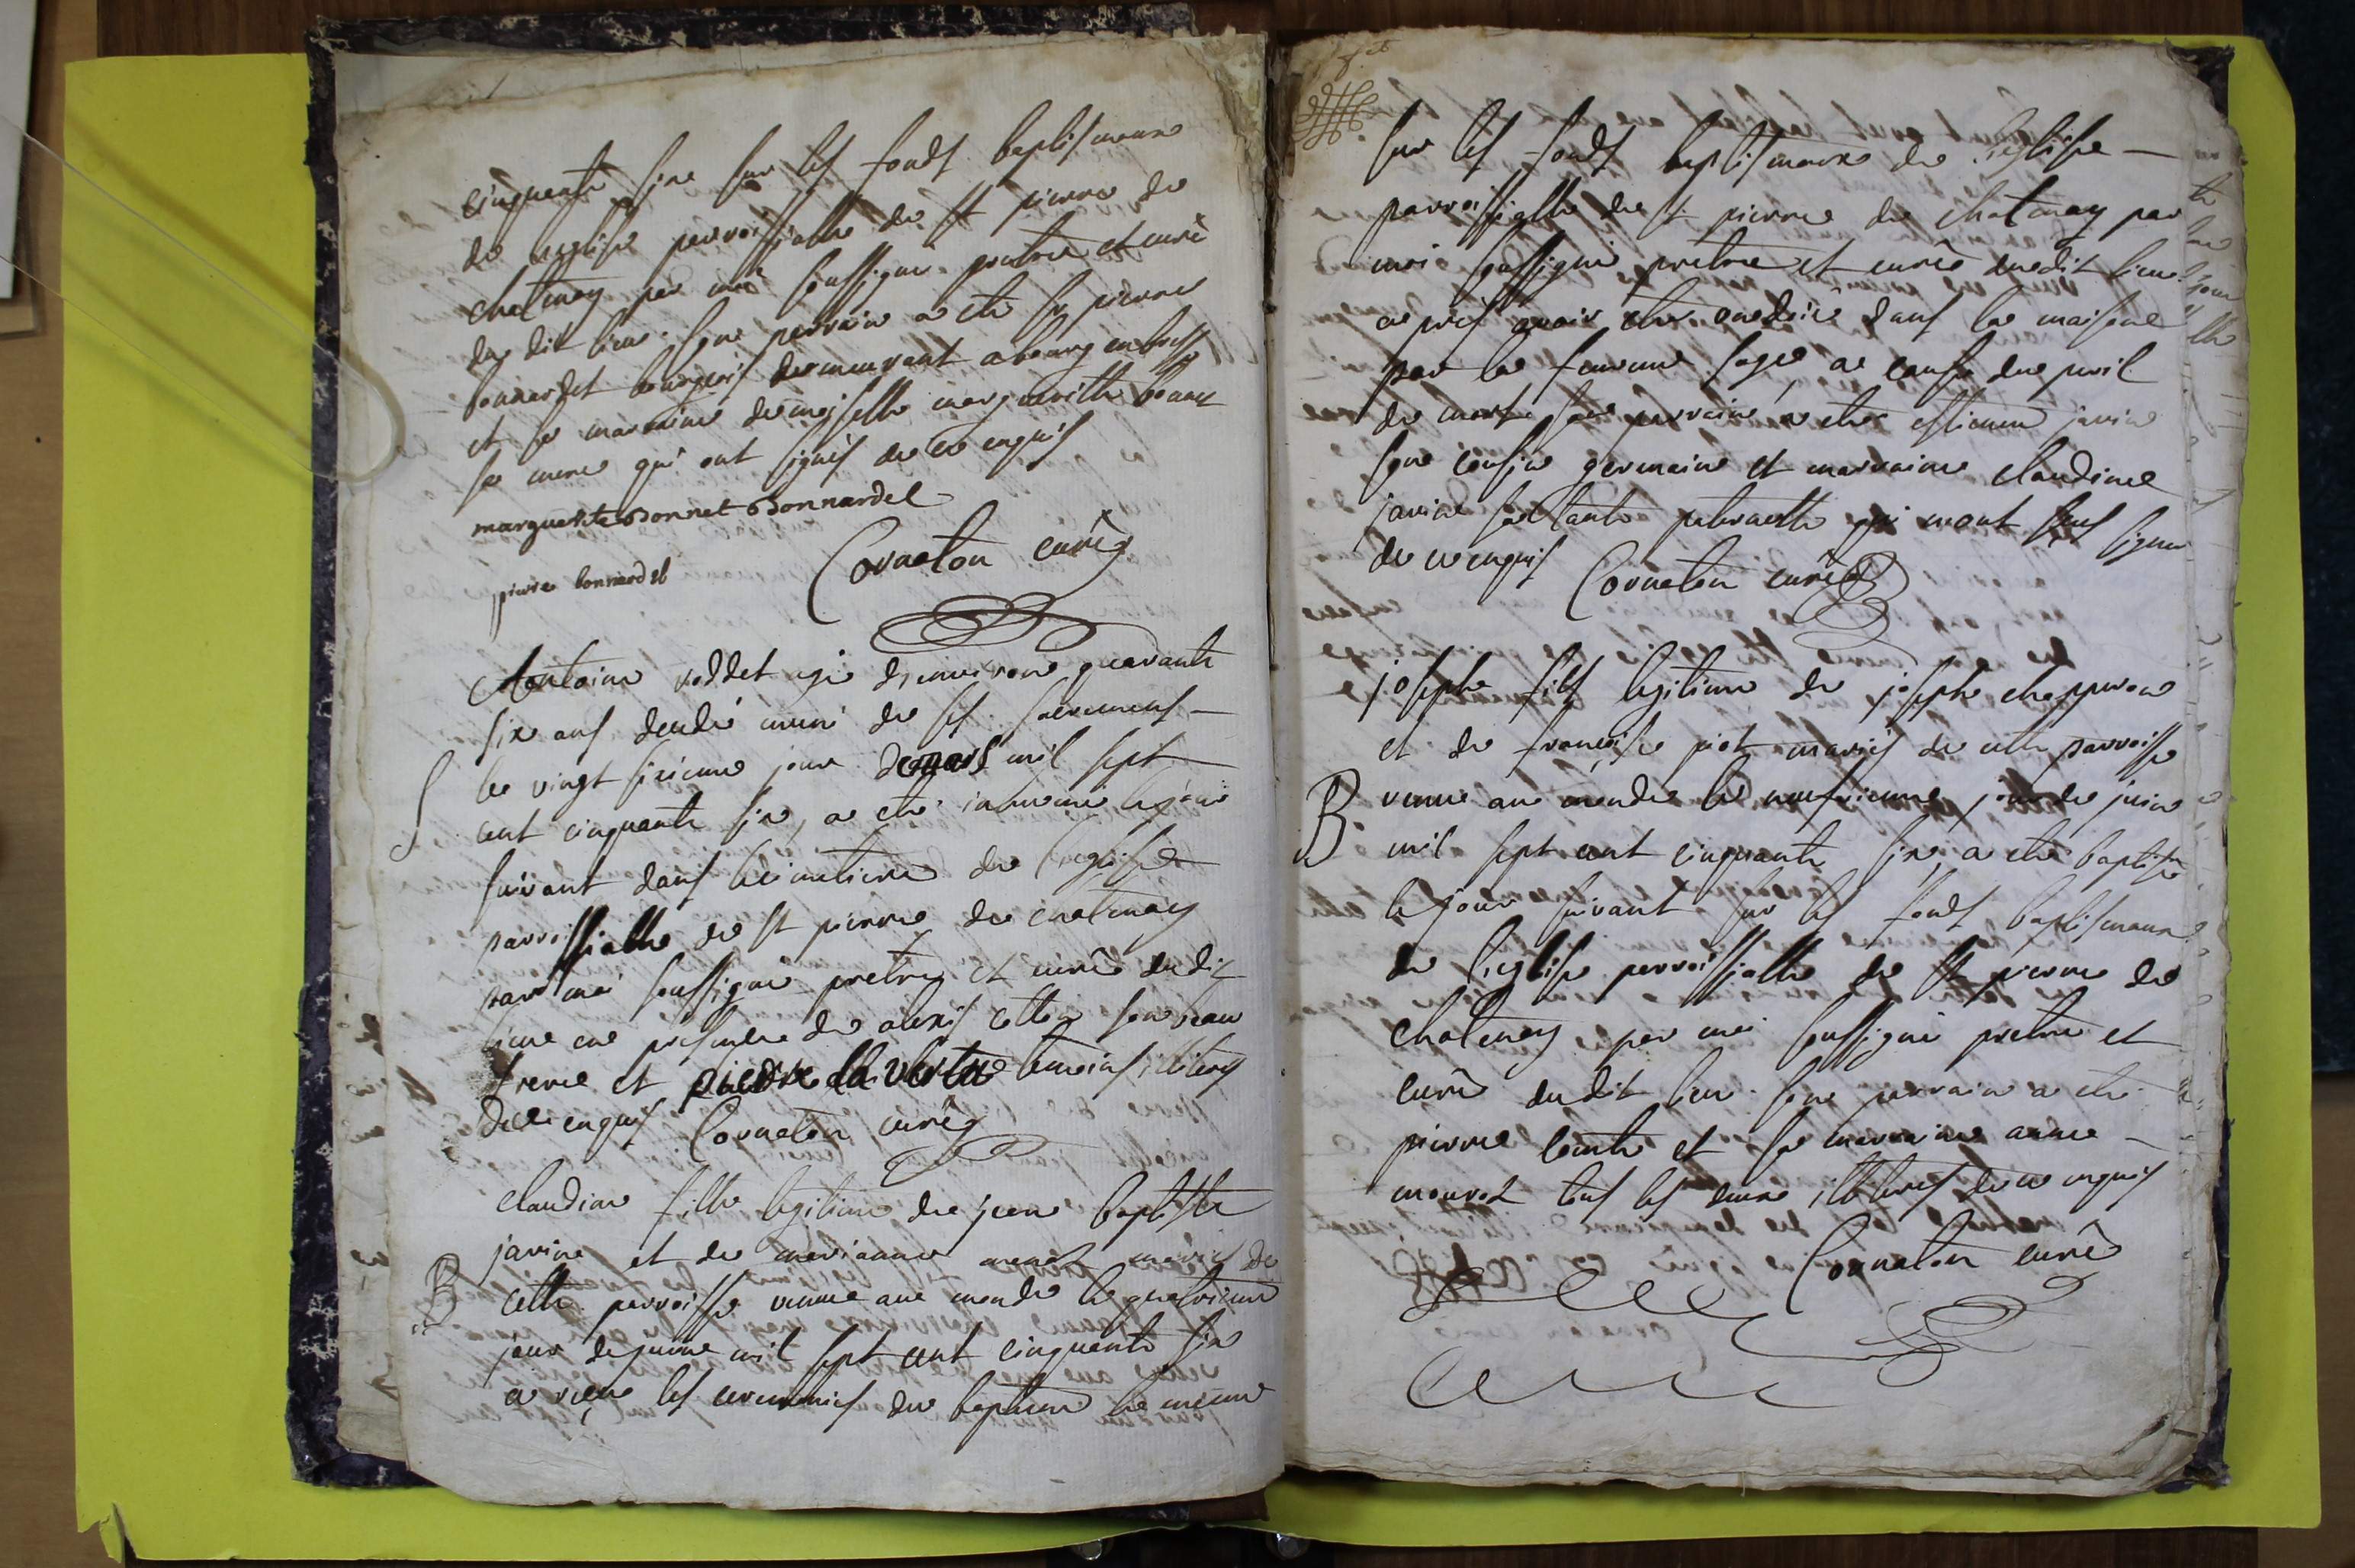 cinquante six sur les fonds baptismaux
de leglise parroissialle de st pierre de
chatenay par moi soussigné pretre et curé
du dit lieu. son parrain a eté sr pierre
bonnardet bourgeois demeurant a bourg en bresse
et sa marraine demoiselle margueritte bonnet
sa mere qui ont signés de ce enquis
marguerite Bonnet Bonnardel
pierre bonnardel
Cornaton curé
Antoine voddet agé denviron quarante
six ans decedé muni de ses sacremens
S
le vingt sixieme jour de mars mil sept
cent cinquante six, a eté inhumé le jour
suivant dans le cimetiere de l'eglise
parroissialle de st pierre de chatenay
par moi soussigné pretre et curé dudit
lieu en presence de alexis son beau
frere et pierre la vertu temoins illiterés
de ce enquis Cornaton curé
Claudine fille legitime de jean baptiste
janin et de marianne mariés de
B
cette parroisse venue au monde le quatrieme
jour de juin mil sept cent cinquante six
a reçu les ceremonies du bapteme le meme
sur les fonds baptismaux de l'eglise
parroissialle de st pierre de chatenay par
moi soussigné pretre et curé dudit lieu
apres avoir eté ondoié dans la maison
par la femme sage a cause du peril
de mort. son parrain a eté estienne janin
son cousin germain et marraine claudine
janin sa tante paternelle qui n'ont sçus signer
de ce enquis Cornaton curé
josephe fils legitime de josephe chappuron
et de françoise piot mariés de cette parroisse
B
venue au monde le neufvieme jour de juin
mil sept cent cinquante six, a eté baptisé
le jour suivant sur les fonds baptismaux
de l'eglise parroissialle de st pierre de
chatenay par moi soussigné pretre et
curé dudit lieu. son parrain a eté
pierre comte et sa marraine anne
tous les deux illiterés de ce enquis
Cornaton curé